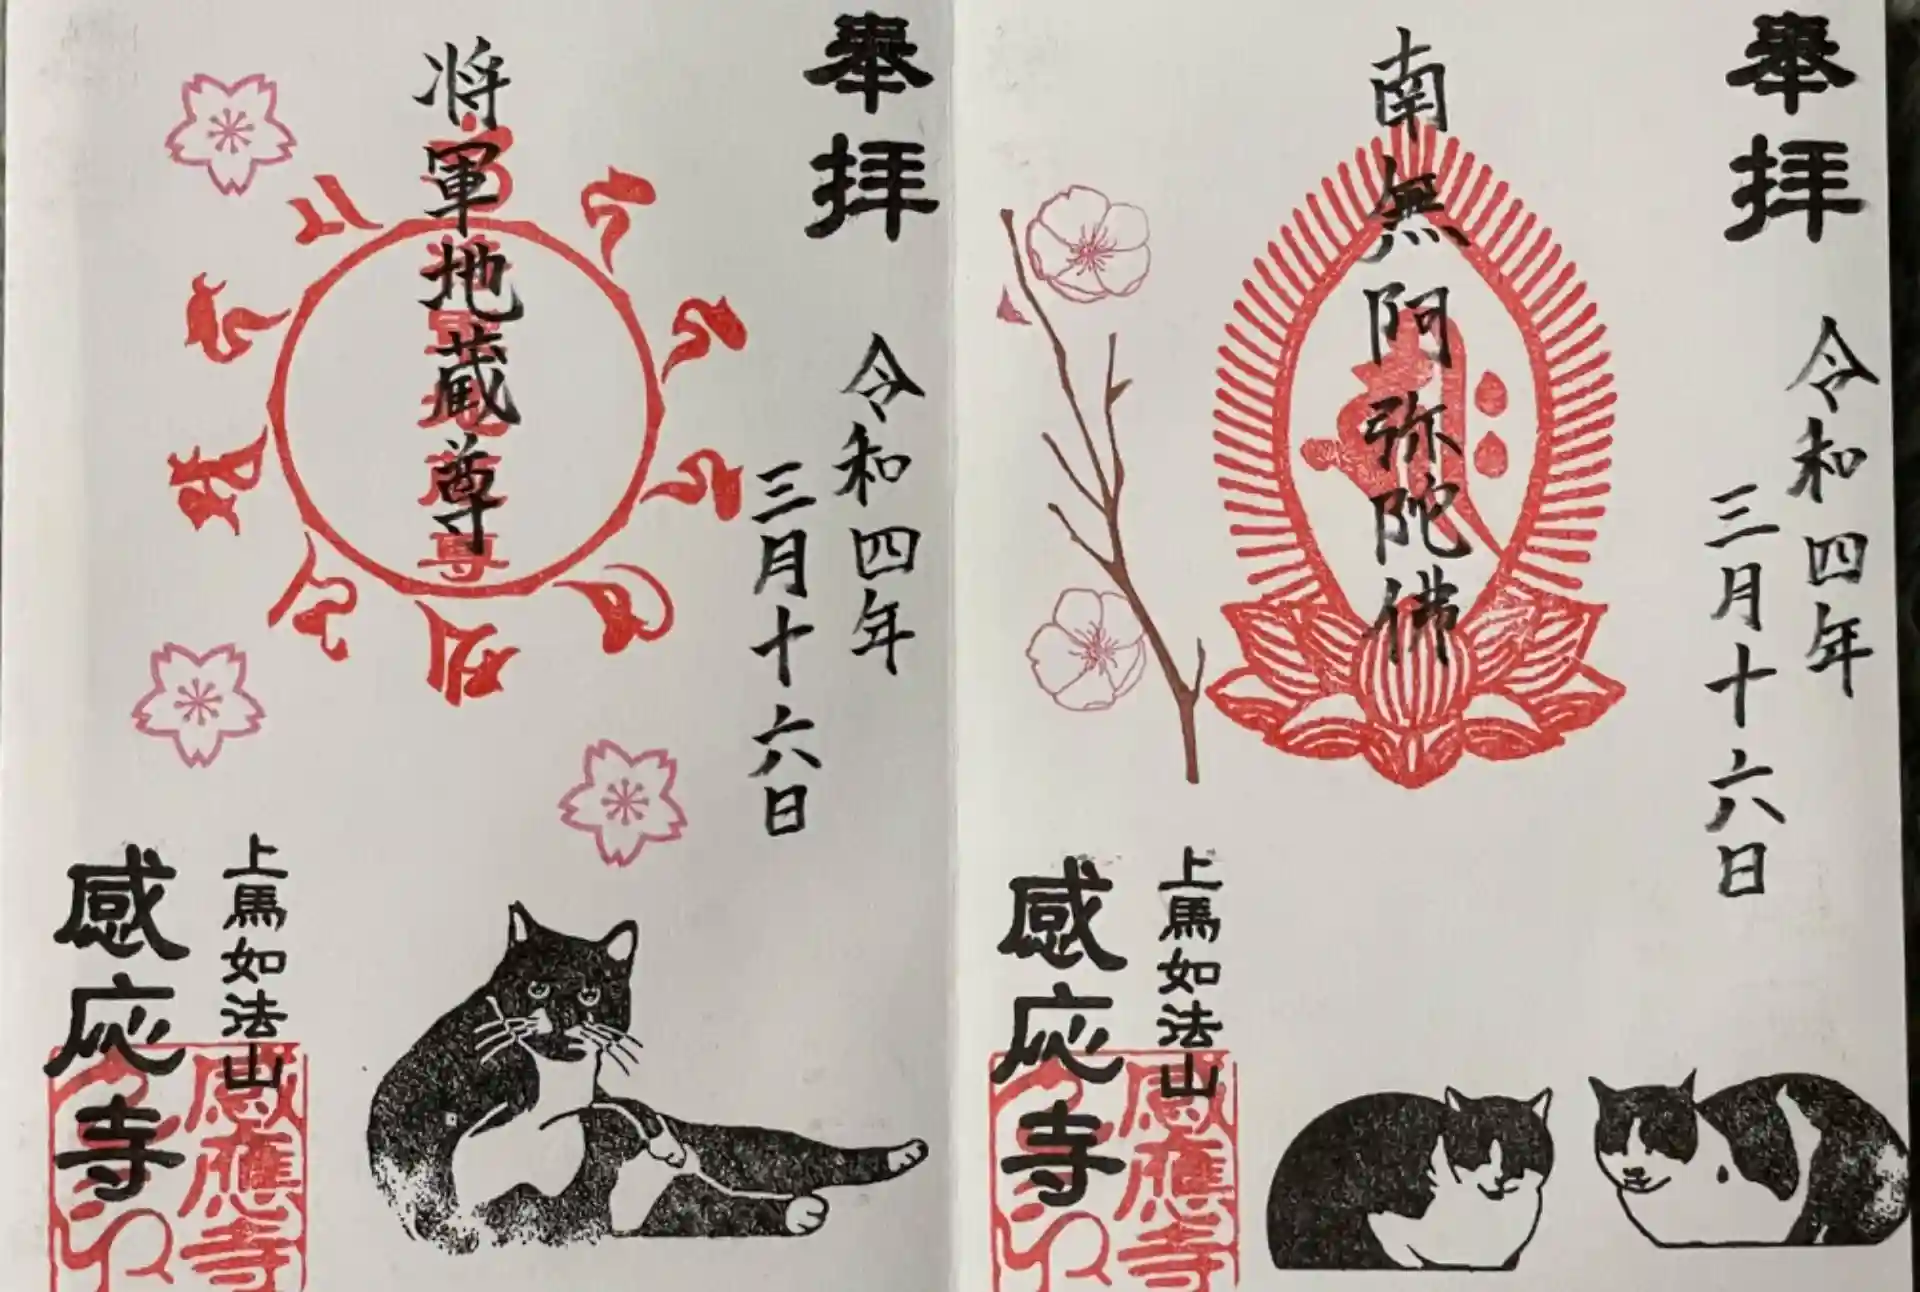 奉拝
令和四年
三月十六日
南無阿弥陀佛
上馬如法山
感応寺
感應寺
奉拝
令和四年
三月十六日
将軍地蔵尊
将軍地蔵尊
上馬如法山
感応寺
感應寺